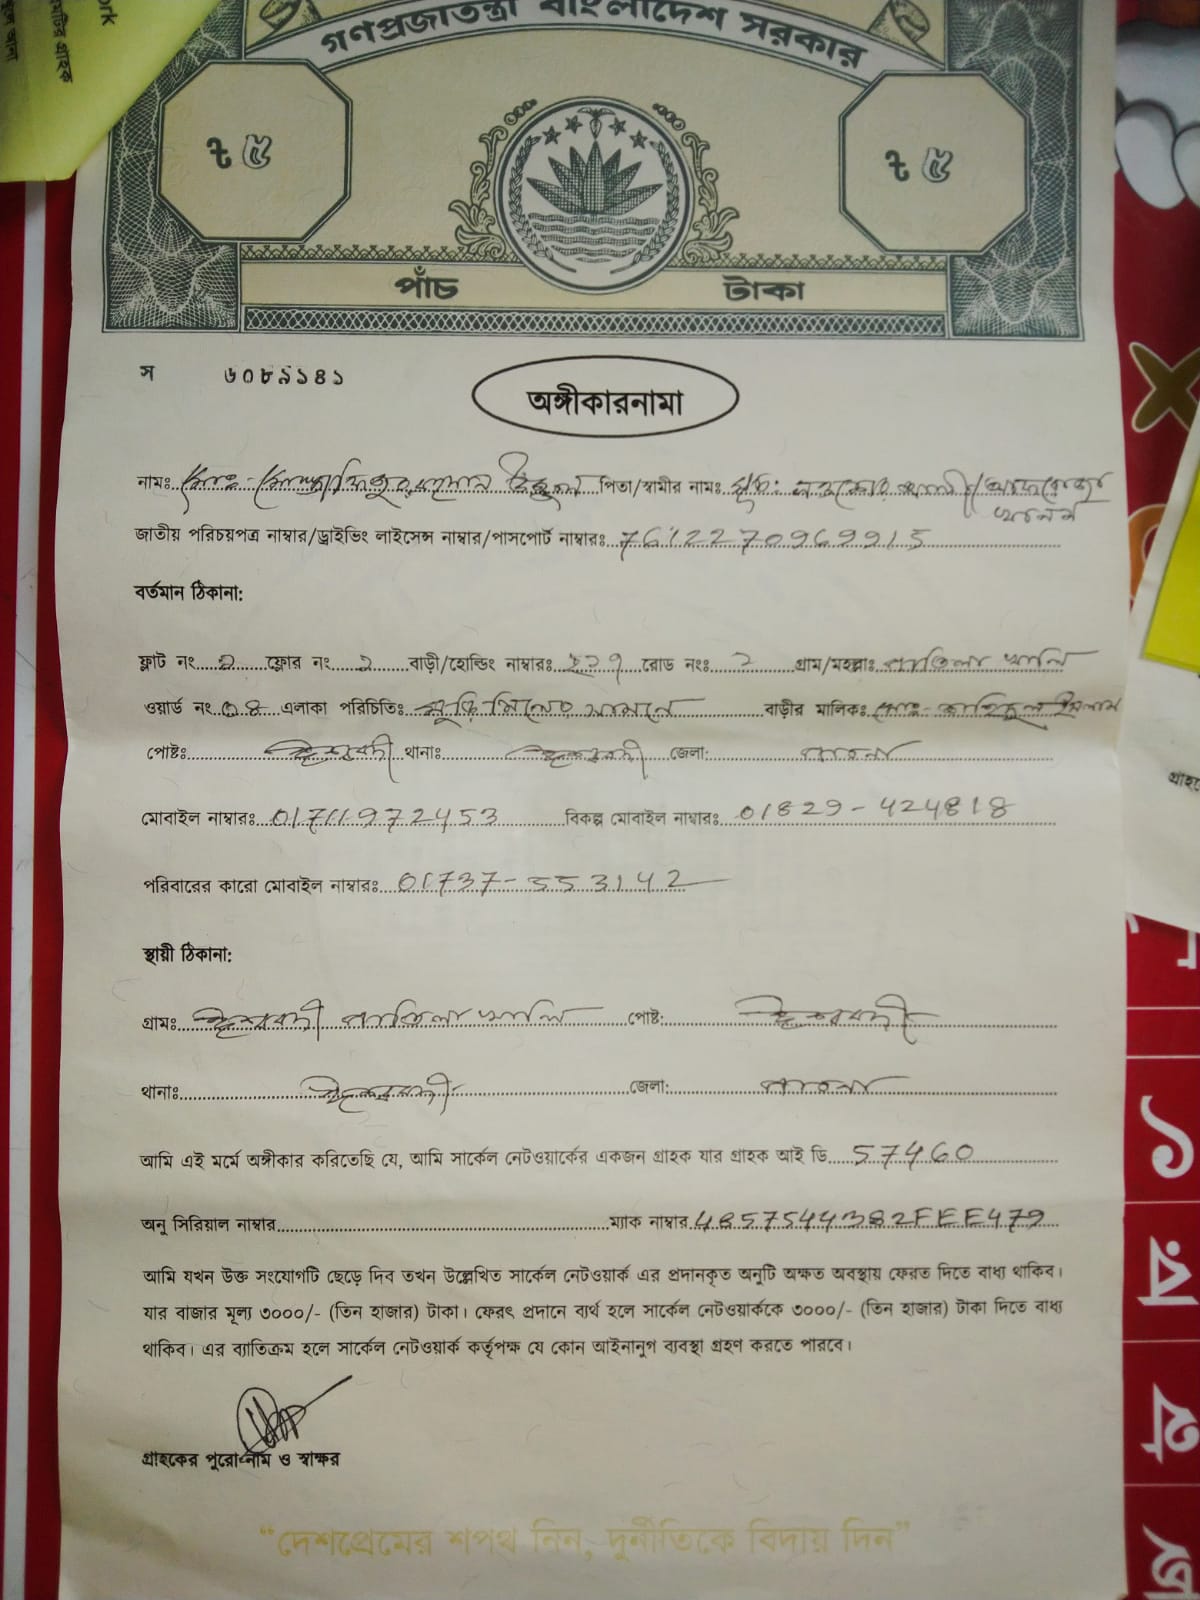 গণপ্রজাতন্ত্রী বাংলাদেশ সরকার
৳ ৫
৳ ৫
পাঁচ টাকা
স ৬০৮৯১৪১
অঙ্গীকারনামা
নামঃ পিতা/স্বামীর নামঃ মৃত:
জাতীয় পরিচয়পত্র নাম্বার/ড্রাইভিং লাইসেন্স নাম্বার/পাসপোর্ট নাম্বারঃ 7612270969915
বর্তমান ঠিকানা:
ফ্লাট নং ফ্লোর নং বাড়ী/হোল্ডিং নাম্বারঃ রোড নংঃ গ্রাম/মহল্লাঃ
ওয়ার্ড নং ০৪ এলাকা পরিচিতিঃ মুড়ি মিলের সামনে বাড়ীর মালিকঃ
পোষ্টঃ ঈশ্বরদী থানাঃ ঈশ্বরদী জেলা: পাবনা
মোবাইল নাম্বারঃ 01711972453 বিকল্প মোবাইল নাম্বারঃ 01829-424818
পরিবারের কারো মোবাইল নাম্বারঃ 01737-553142
স্থায়ী ঠিকানা:
গ্রামঃ ঈশ্বরদী পোষ্ট: ঈশ্বরদী
থানাঃ ঈশ্বরদী জেলা: পাবনা
আমি এই মর্মে অঙ্গীকার করিতেছি যে, আমি সার্কেল নেটওয়ার্কের একজন গ্রাহক যার গ্রাহক আই ডি 57460
অনু সিরিয়াল নাম্বার ম্যাক নাম্বার
আমি যখন উক্ত সংযোগটি ছেড়ে দিব তখন উল্লেখিত সার্কেল নেটওয়ার্ক এর প্রদানকৃত অনুটি অক্ষত অবস্থায় ফেরত দিতে বাধ্য থাকিব।
যার বাজার মূল্য ৩০০০/- (তিন হাজার) টাকা। ফেরৎ প্রদানে ব্যর্থ হলে সার্কেল নেটওয়ার্ককে ৩০০০/- (তিন হাজার) টাকা দিতে বাধ্য
থাকিব। এর ব্যাতিক্রম হলে সার্কেল নেটওয়ার্ক কর্তৃপক্ষ যে কোন আইনানুগ ব্যবস্থা গ্রহণ করতে পারবে।
গ্রাহকের পুরো নাম ও স্বাক্ষর
“দেশপ্রেমের শপথ নিন, দুর্নীতিকে বিদায় দিন”